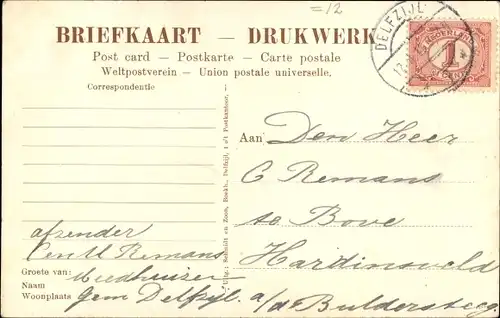 =12
BRIEFKAART — DRUKWERK
Post card – Postkarte – Carte postale
Weltpostverein – Union postale universelle.
Correspondentie
DELFZIJL
NEDERLAND
1
CENT
Aan Den Heer
C Remans
te Bove
Hardinxveld
a/d Buldersteeg
Uitg.: Schuitt en Zoon, Boekh., Delfzijl, t o/t Postkantoor.
afzender
Remans
Groete van: Meedhuizen
Naam
Woonplaats Gem Delfzijl